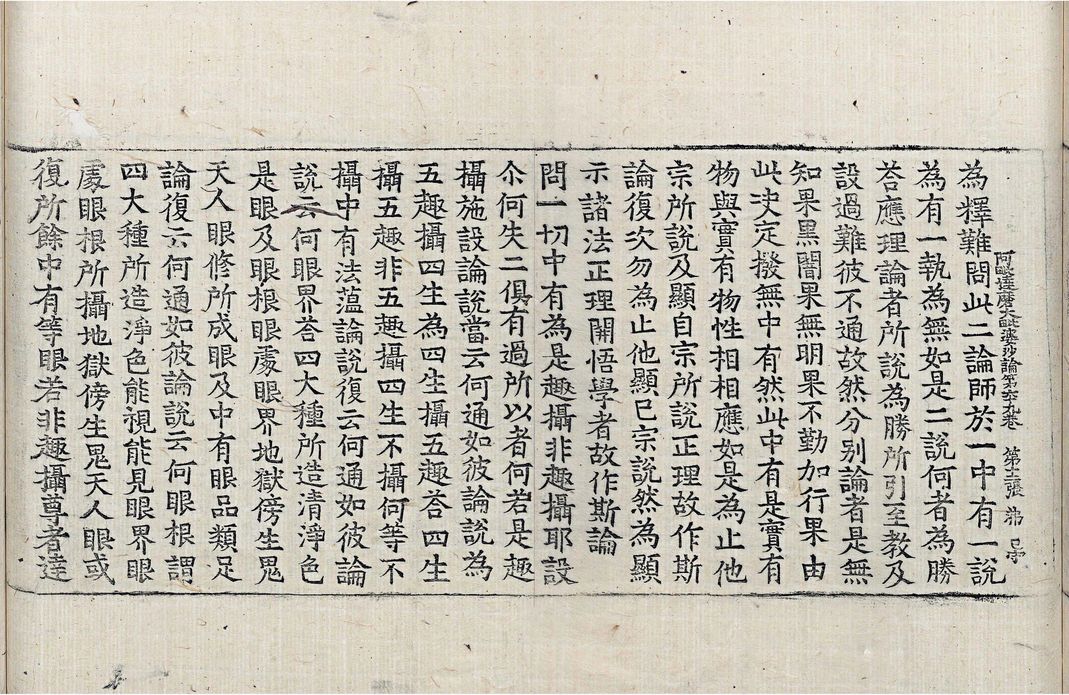 阿毗達磨大毗婆沙論第六十九卷　第十二張　弟
為釋難問此二論師於一中有一說
為有一執為無如是二說何者為勝
荅應理論者所說為勝所引至教及
設過難彼不通故然分別論者是無
知果黑闇果無明果不勤加行果由
此決定撥無中有然此中有是實有
物與實有物性相相應如是為止他
宗所說及顯自宗所說正理故作斯
論復次勿為止他顯已宗說然為顯
示諸法正理開悟學者故作斯論
問一切中有為是趣攝非趣攝耶設
尒何失二俱有過所以者何若是趣
攝施設論說當云何通如彼論說為
五趣攝四生為四生攝五趣荅四生
攝五趣非五趣攝四生不攝何等不
攝中有法蘊論說復云何通如彼論
說云何眼界荅四大種所造清淨色
是眼及眼根眼處眼界地獄傍生鬼
天人眼修所成眼及中有眼品類足
論復云何通如彼論說云何眼根謂
四大種所造淨色能視能見眼界眼
處眼根所攝地獄傍生鬼天人眼或
復所餘中有等眼若非趣攝尊者達